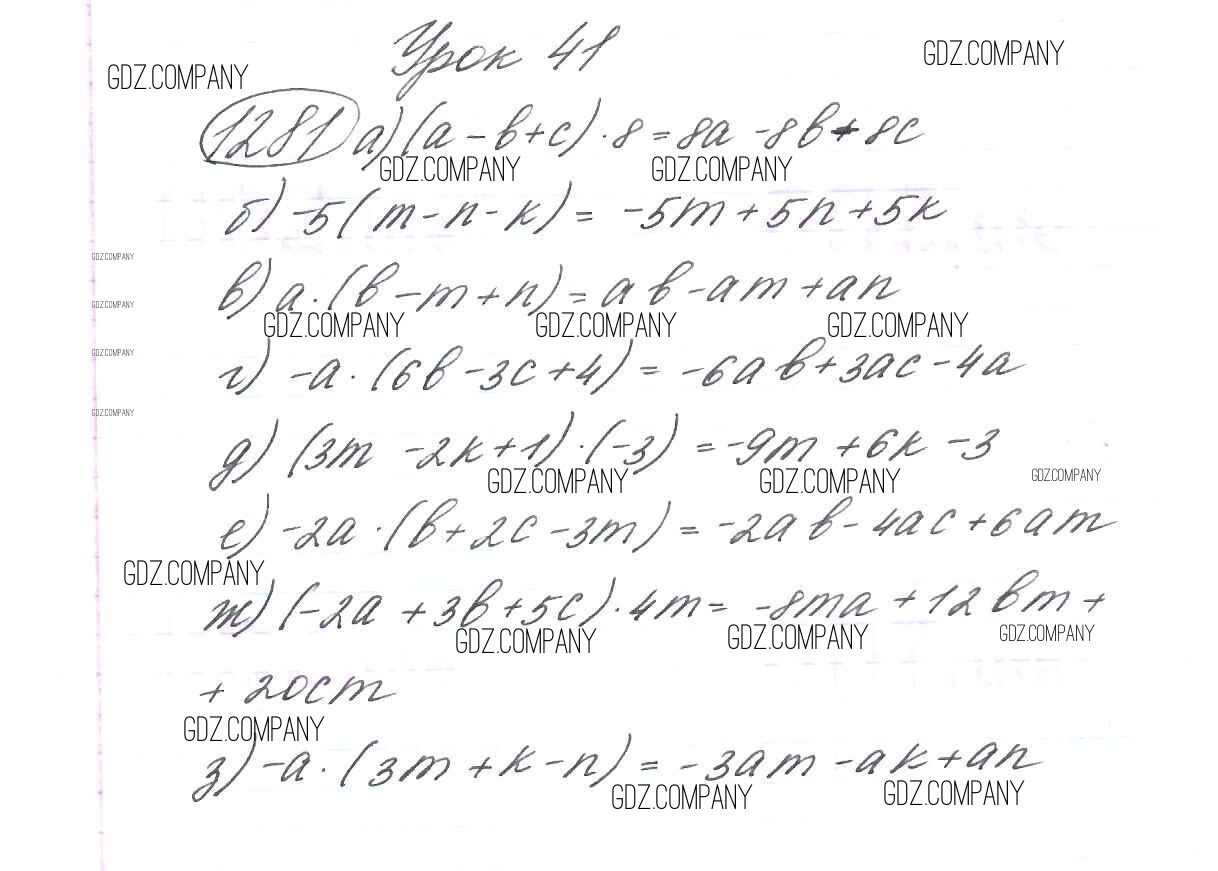 Урок 41
GDZ.COMPANY GDZ.COMPANY
1281 а) (a - b + c) · 8 = 8a - 8b + 8c
GDZ.COMPANY GDZ.COMPANY
б) -5(m - n - k) = -5m + 5n + 5k
GDZ.COMPANY
в) a · (b - m + n) = ab - am + an
GDZ.COMPANY
GDZ.COMPANY GDZ.COMPANY GDZ.COMPANY
GDZ.COMPANY
г) -a · (6b - 3c + 4) = -6ab + 3ac - 4a
GDZ.COMPANY
д) (3m - 2k + 1) · (-3) = -9m + 6k - 3
GDZ.COMPANY GDZ.COMPANY GDZ.COMPANY
е) -2a · (b + 2c - 3m) = -2ab - 4ac + 6am
GDZ.COMPANY
ж) (-2a + 3b + 5c) · 4m = -8ma + 12bm +
GDZ.COMPANY GDZ.COMPANY GDZ.COMPANY
+ 20cm
GDZ.COMPANY
з) -a · (3m + k - n) = -3am - ak + an
GDZ.COMPANY GDZ.COMPANY